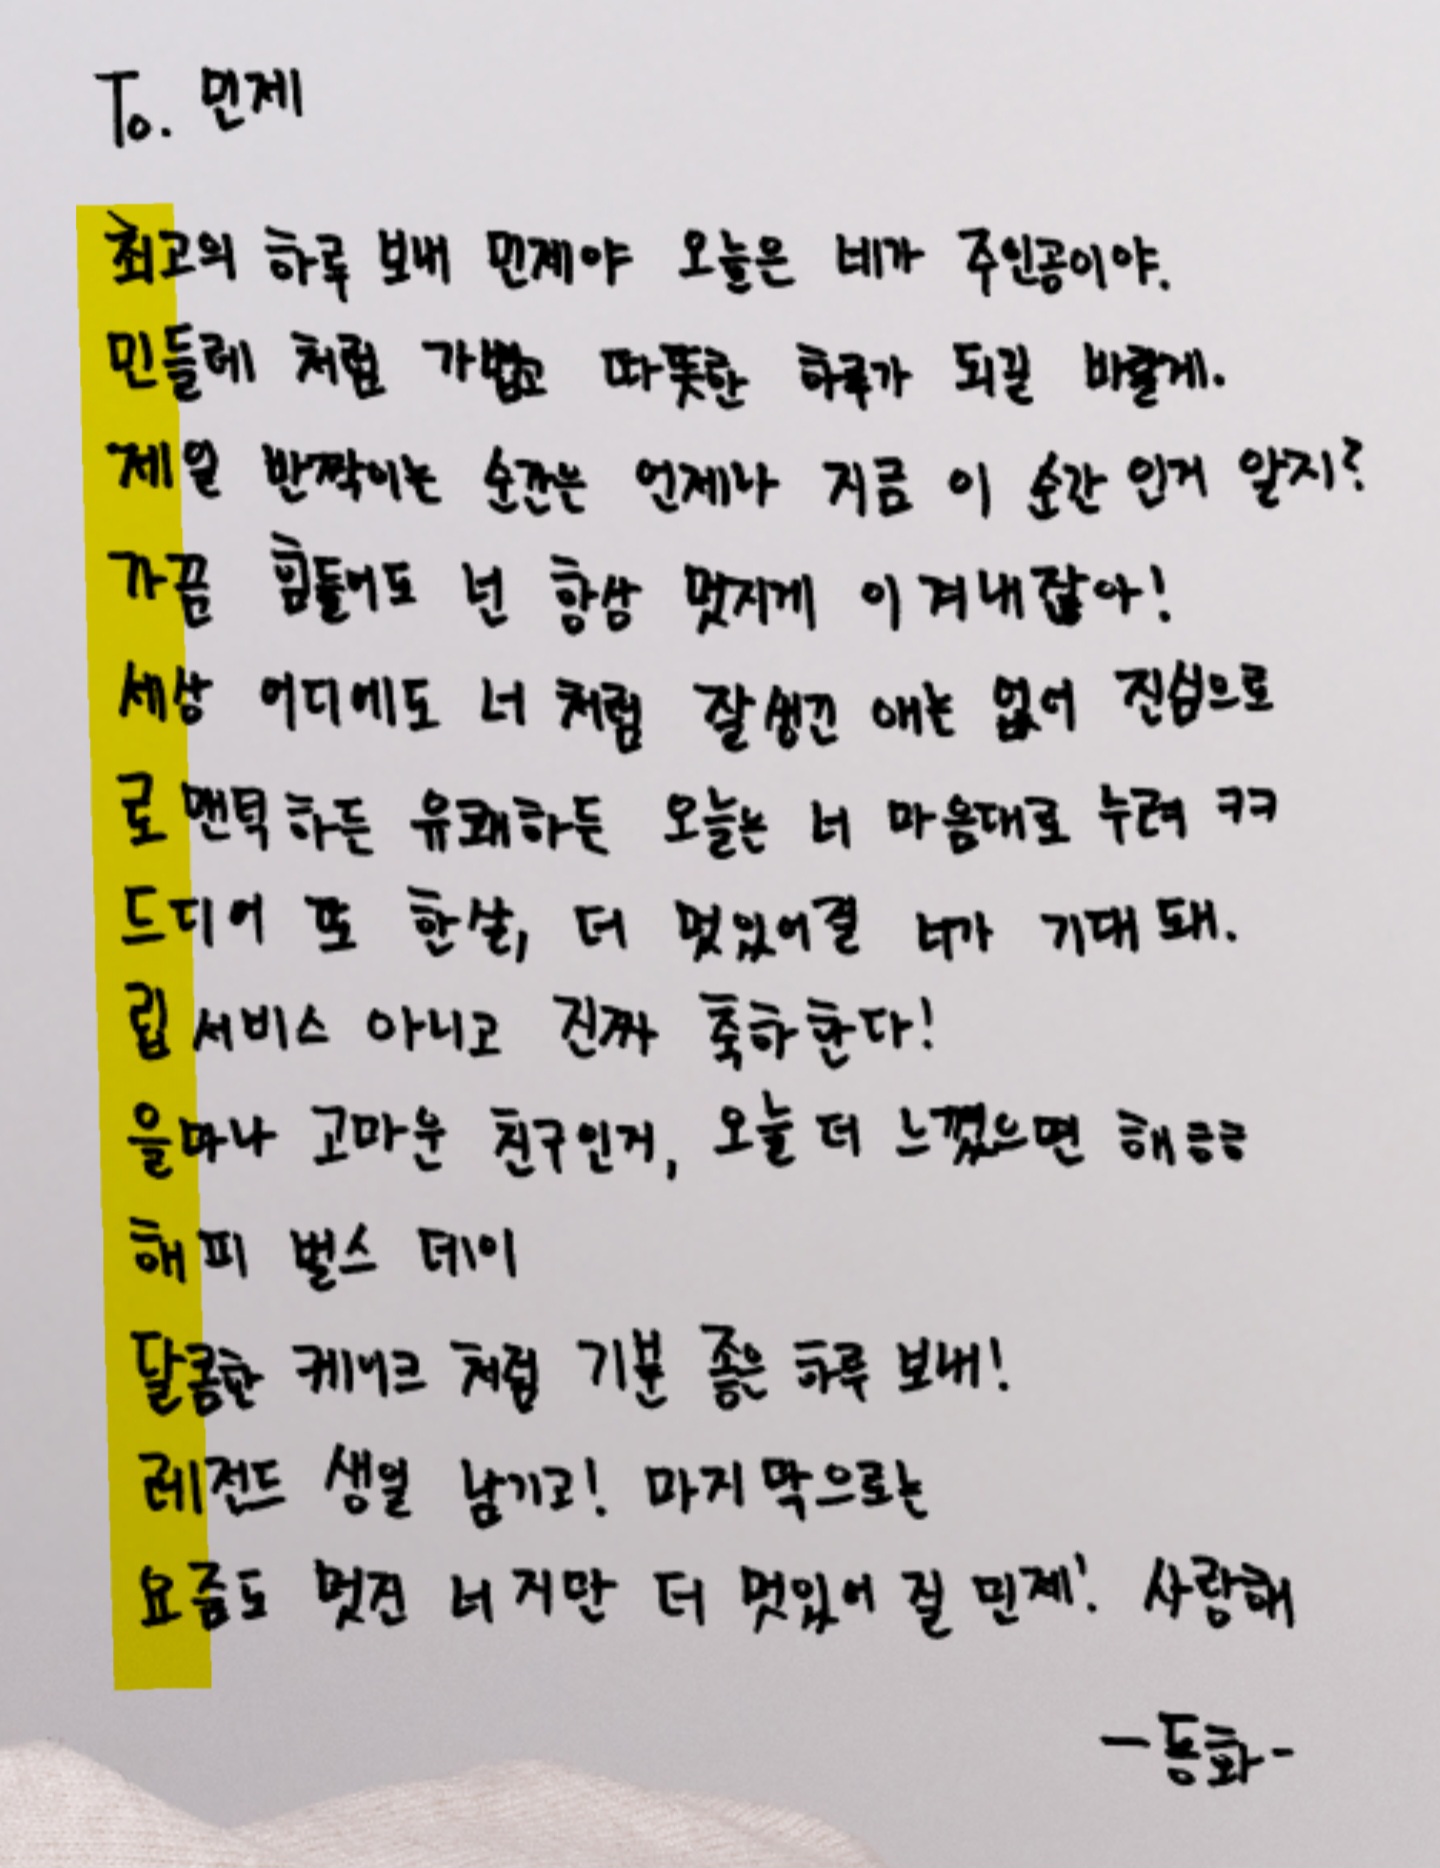 To. 민제
최고의 하루 보내 민제야 오늘은 네가 주인공이야.
민들레 처럼 가볍고 따뜻한 하루가 되길 바랄게.
제일 반짝이는 순간은 언제나 지금 이 순간 인거 알지?
가끔 힘들어도 넌 항상 멋지게 이겨내잖아!
세상 어디에도 너 처럼 잘생긴 애는 없어 진심으로
로맨틱하든 유쾌하든 오늘는 너 마음대로 누려 ㅋㅋ
드디어 또 한살, 더 멋있어질 너가 기대 돼.
립서비스 아니고 진짜 축하한다!
을마나 고마운 친구인거, 오늘 더 느꼈으면 해 ㅎㅎ
해피 벌스 데이
달콤한 케이크 처럼 기분 좋은 하루 보내!
레전드 생일 남기고! 마지막으로는
요즘도 멋진 너지만 더 멋있어 질 민제! 사랑해
-동화-